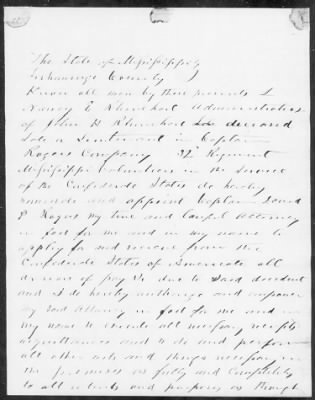 The State of Mississippi
Tishamingo County
Know all men by these presents I
Nancy E Rhinehart Administratrix
of John B Rhinehart deceased
late a Lieutenant in Captain
Rogers Company 32d Regiment
Mississippi Volunteers in the Service
of the Confederate States do hereby
nominate and appoint Captain
P Rogers my true and lawful Attorney
in fact for me and in my name to
apply for and receive from the
Confederate States of America all
arrears of pay &c due to said decedent
and I do hereby authorize and empower
my said Attorney in fact for me and in
my name to execute all necessary receipts
acquittances and to do and perform
all other acts and things necessary in
the premises as fully and completely
to all intents and purposes as though